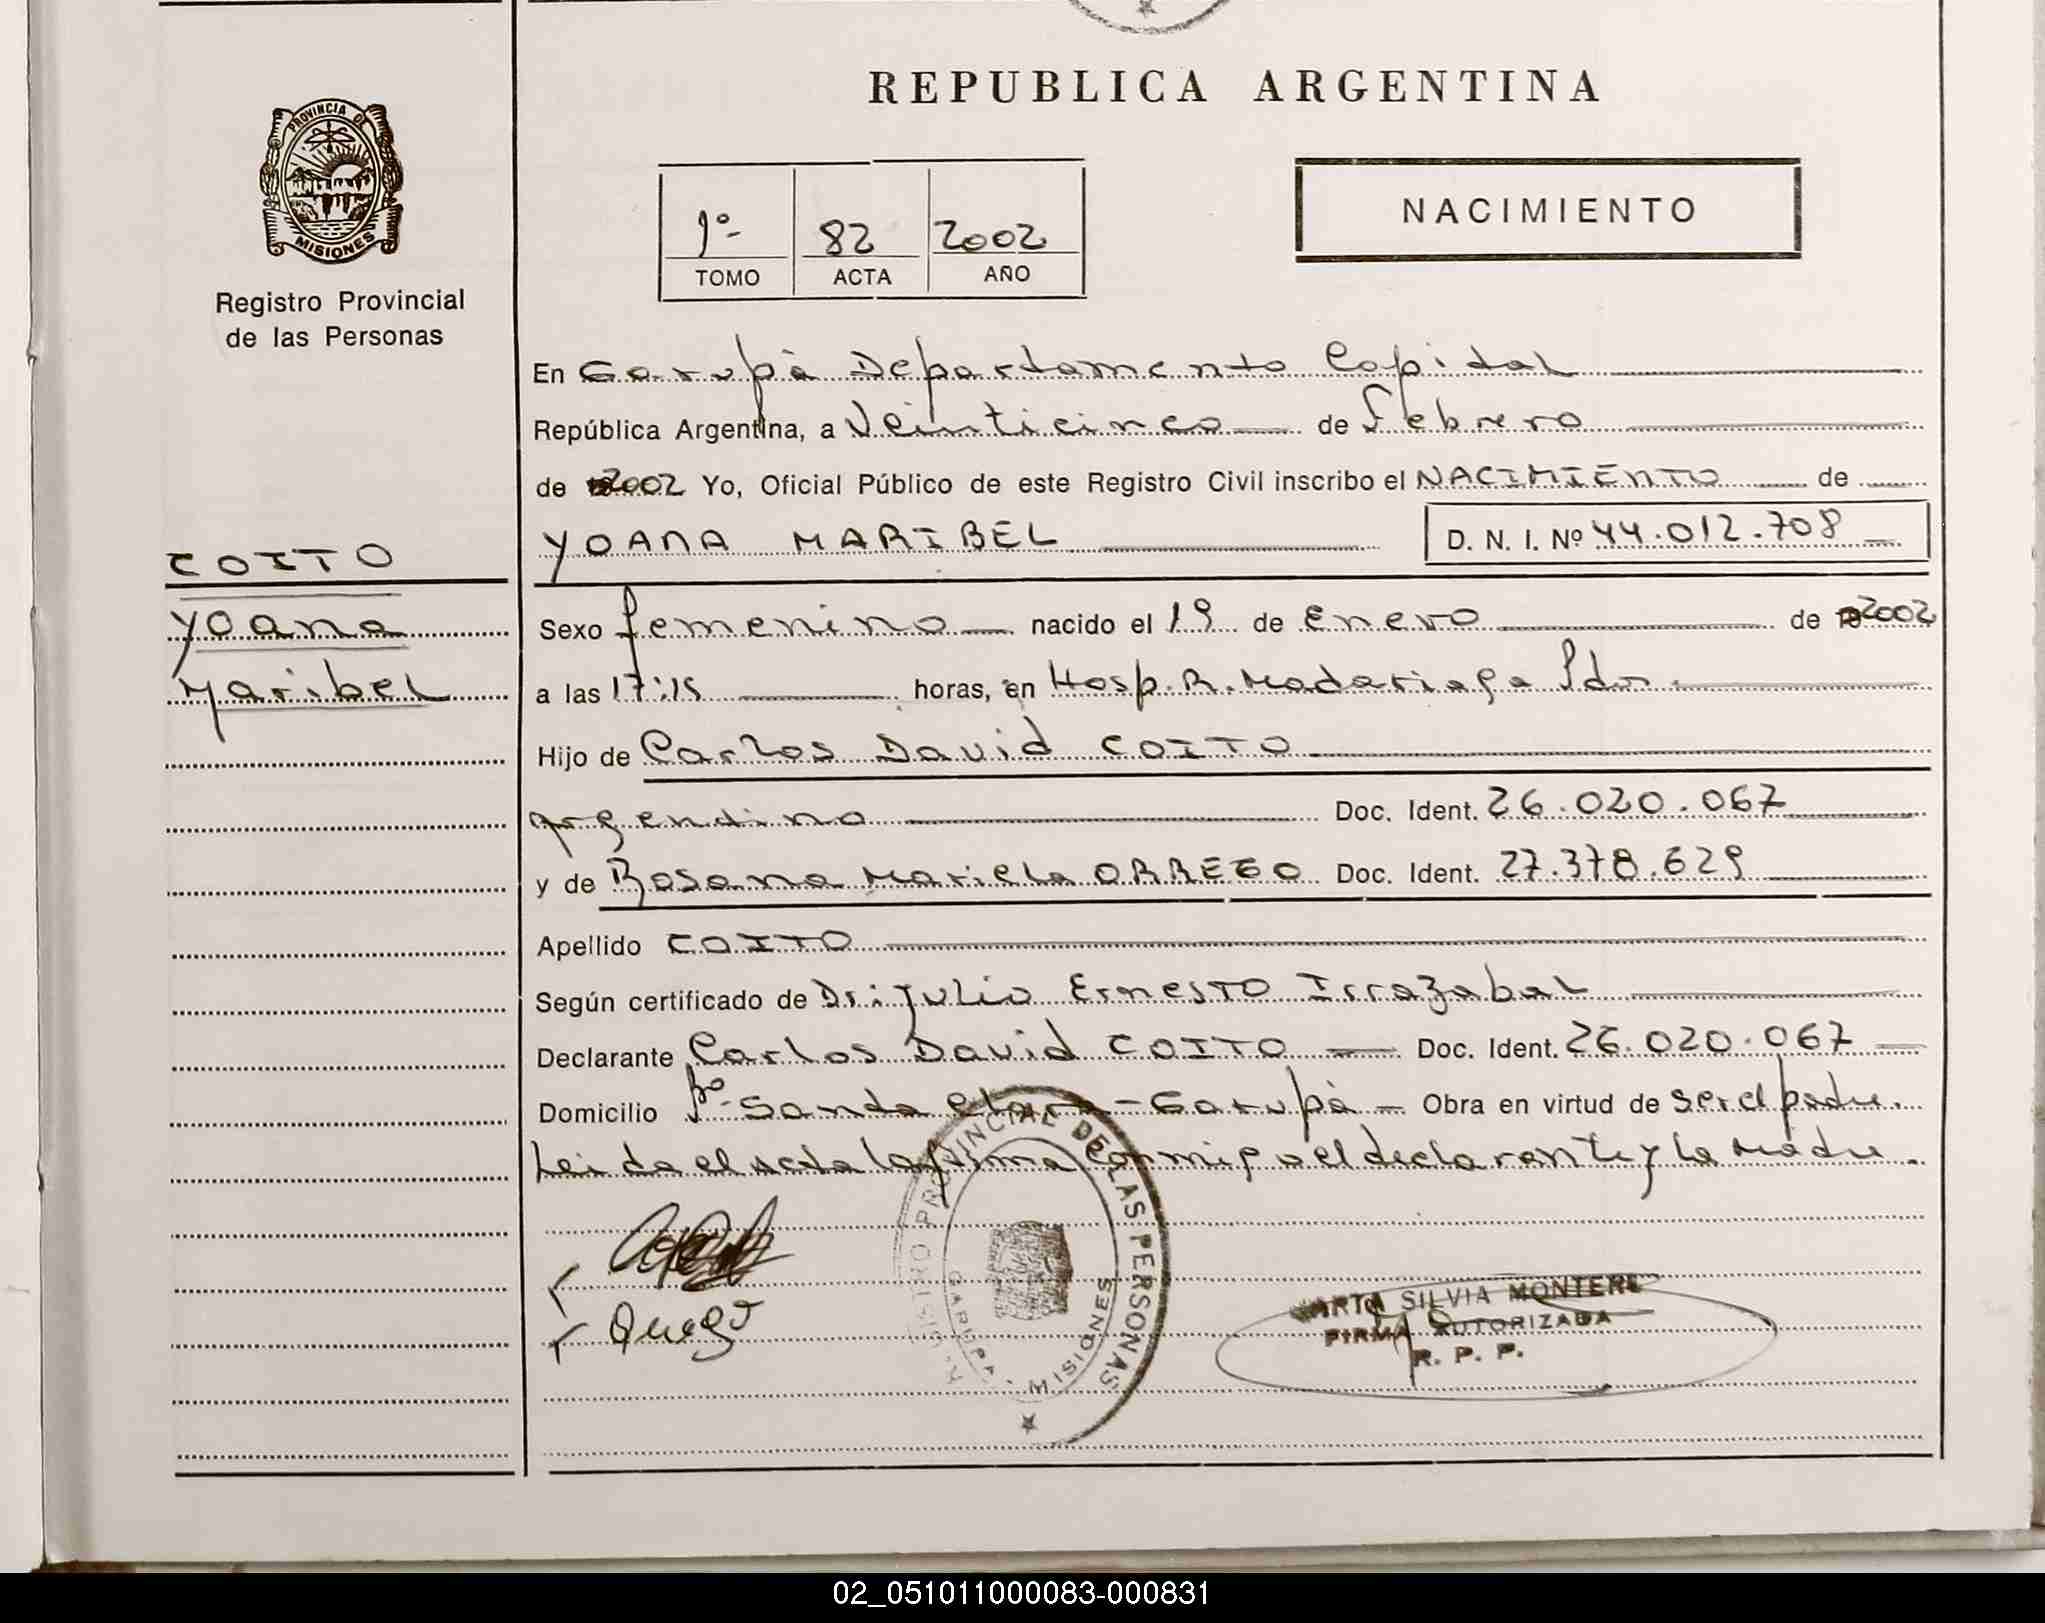 REPUBLICA ARGENTINA
PROVINCIA DE
MISIONES
Registro Provincial
de las Personas
1º 82 2002
TOMO ACTA AÑO
NACIMIENTO
En Garupá Departamento Capital
República Argentina, a Veinticinco de Febrero
de 2002 Yo, Oficial Público de este Registro Civil inscribo el NACIMIENTO de
YOANA MARIBEL D. N. I. Nº 44.012.708
COITO
Yoana
Maribel
Sexo femenino nacido el 19 de Enero de 2002
a las 17:15 horas, en Hosp. R. Madariaga Pdas.
Hijo de Carlos David COITO
argentino Doc. Ident. 26.020.067
y de Rosana Mariela ORREGO Doc. Ident. 27.378.629
Apellido COITO
Según certificado de Dr: Julio Ernesto Irrazabal
Declarante Carlos David COITO Doc. Ident. 26.020.067
Domicilio Bº Santa Clara - Garupá - Obra en virtud de ser el padre.
Leida el acta la firma conmigo el declarante y la madre.
REGISTRO PROVINCIAL DE LAS PERSONAS
GARUPA - MISIONES
Orrego
SILVIA
FIRMA AUTORIZADA
R. P. P.
02_051011000083-000831